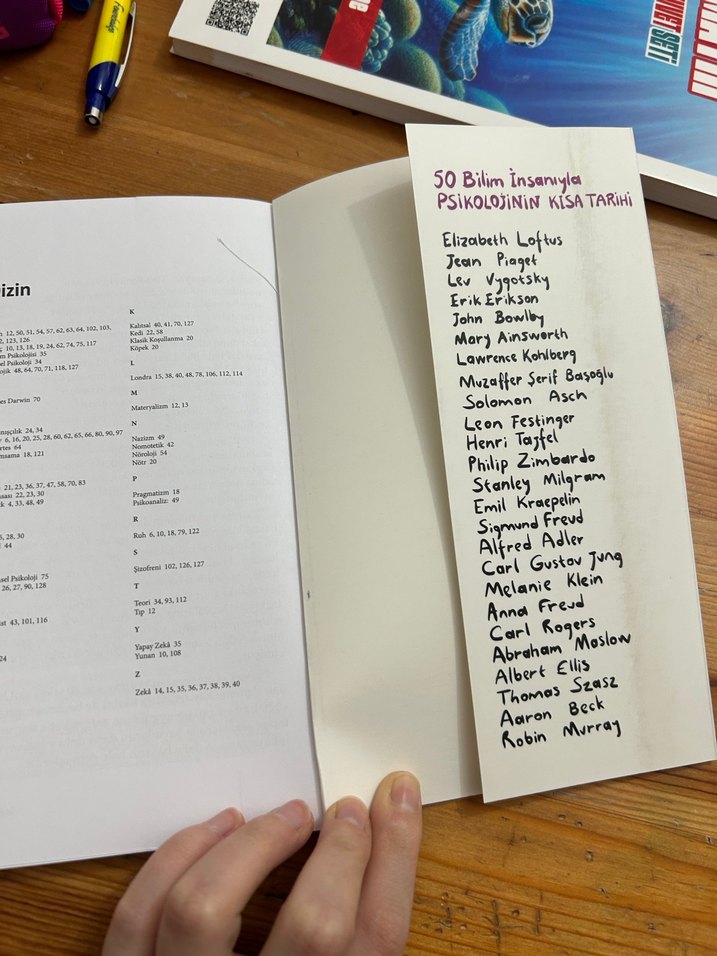 izin
12, 50, 51, 54, 57, 62, 63, 64, 102, 103,
2, 123, 126
10, 13, 18, 19, 24, 62, 74, 75, 117
m Psikolojisi 35
el Psikoloji 34
ojik 48, 64, 70, 71, 118, 127
es Darwin 70
nışçılık 24, 34
6, 16, 20, 25, 28, 60, 62, 65, 66, 80, 90, 97
rtes 64
msama 18, 121
21, 23, 36, 37, 47, 58, 70, 83
sası 22, 23, 30
k 4, 33, 48, 49
5, 28, 30
44
sel Psikoloji 75
26, 27, 90, 128
ist 43, 101, 116
24
K
Kalıtsal 40, 41, 70, 127
Kedi 22, 58
Klasik Koşullanma 20
Köpek 20
L
Londra 15, 38, 40, 48, 78, 106, 112, 114
M
Materyalizm 12, 13
N
Nazizm 49
Nomotetik 42
Nöroloji 54
Nötr 20
P
Pragmatizm 18
Psikoanaliz: 49
R
Ruh 6, 10, 18, 79, 122
S
Şizofreni 102, 126, 127
T
Teori 34, 93, 112
Tıp 12
Y
Yapay Zekâ 35
Yunan 10, 108
Z
Zekâ 14, 15, 35, 36, 37, 38, 39, 40
50 Bilim İnsanıyla
PSİKOLOJİNİN KISA TARİHİ
Elizabeth Loftus
Jean Piaget
Lev Vygotsky
Erik Erikson
John Bowlby
Mary Ainsworth
Lawrence Kohlberg
Muzaffer Şerif Başoğlu
Solomon Asch
Leon Festinger
Henri Tajfel
Philip Zimbardo
Stanley Milgram
Emil Kraepelin
Sigmund Freud
Alfred Adler
Carl Gustav Jung
Melanie Klein
Anna Freud
Carl Rogers
Abraham Maslow
Albert Ellis
Thomas Szasz
Aaron Beck
Robin Murray